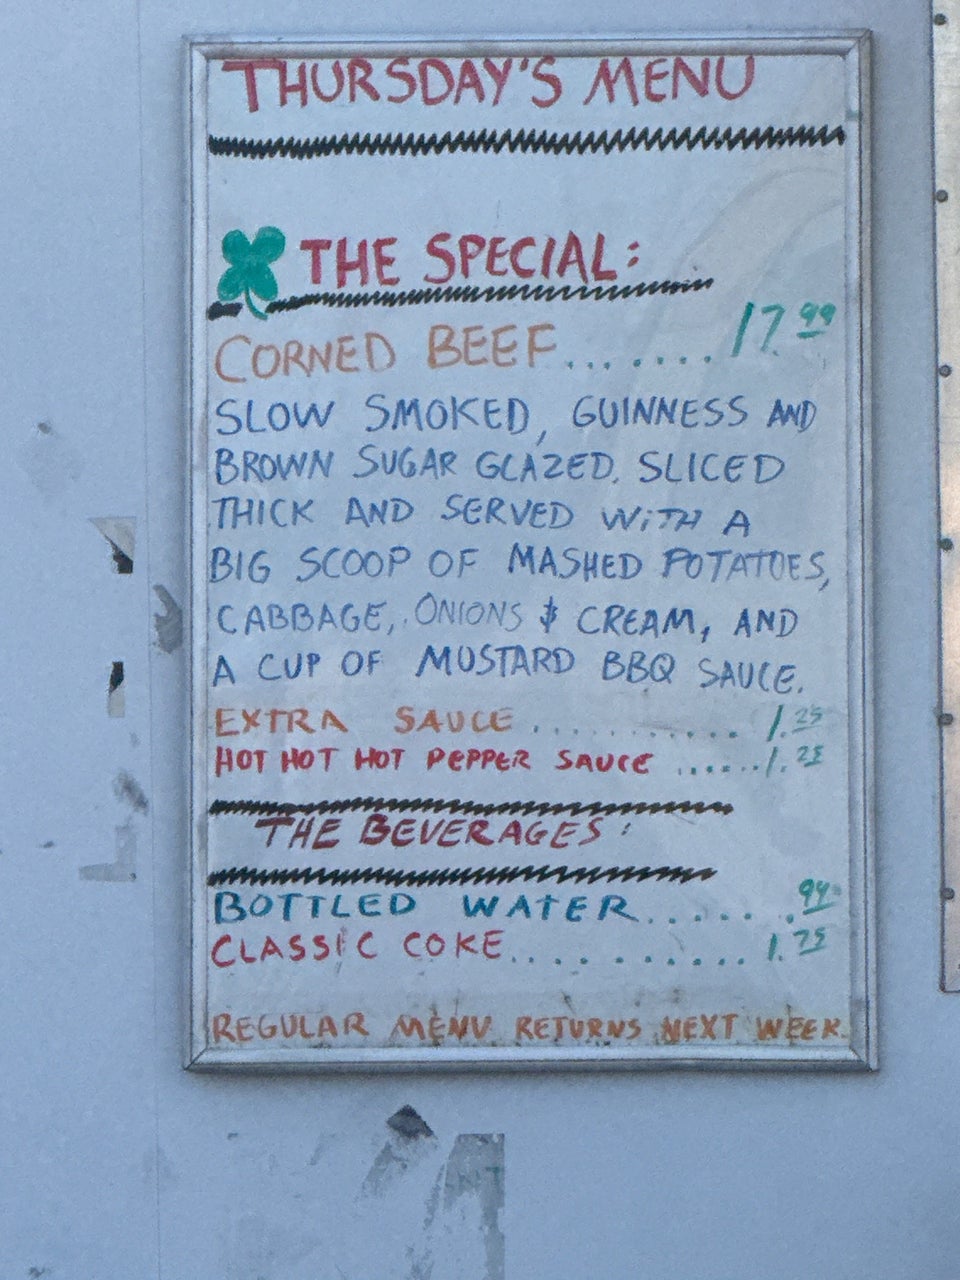 THURSDAY'S MENU
THE SPECIAL:
CORNED BEEF....... 17.99
SLOW SMOKED, GUINNESS AND
BROWN SUGAR GLAZED. SLICED
THICK AND SERVED WiTH A
BIG SCOOP OF MASHED POTATOES,
CABBAGE, ONIONS $ CREAM, AND
A CUP OF MUSTARD BBQ SAUCE.
EXTRA SAUCE ........... 1.25
HOT HOT HOT PEPPER SAUCE ...... 1.25
THE BEVERAGES:
BOTTLED WATER...... .94
CLASSIC COKE........... 1.75
REGULAR MENU RETURNS NEXT WEEK.